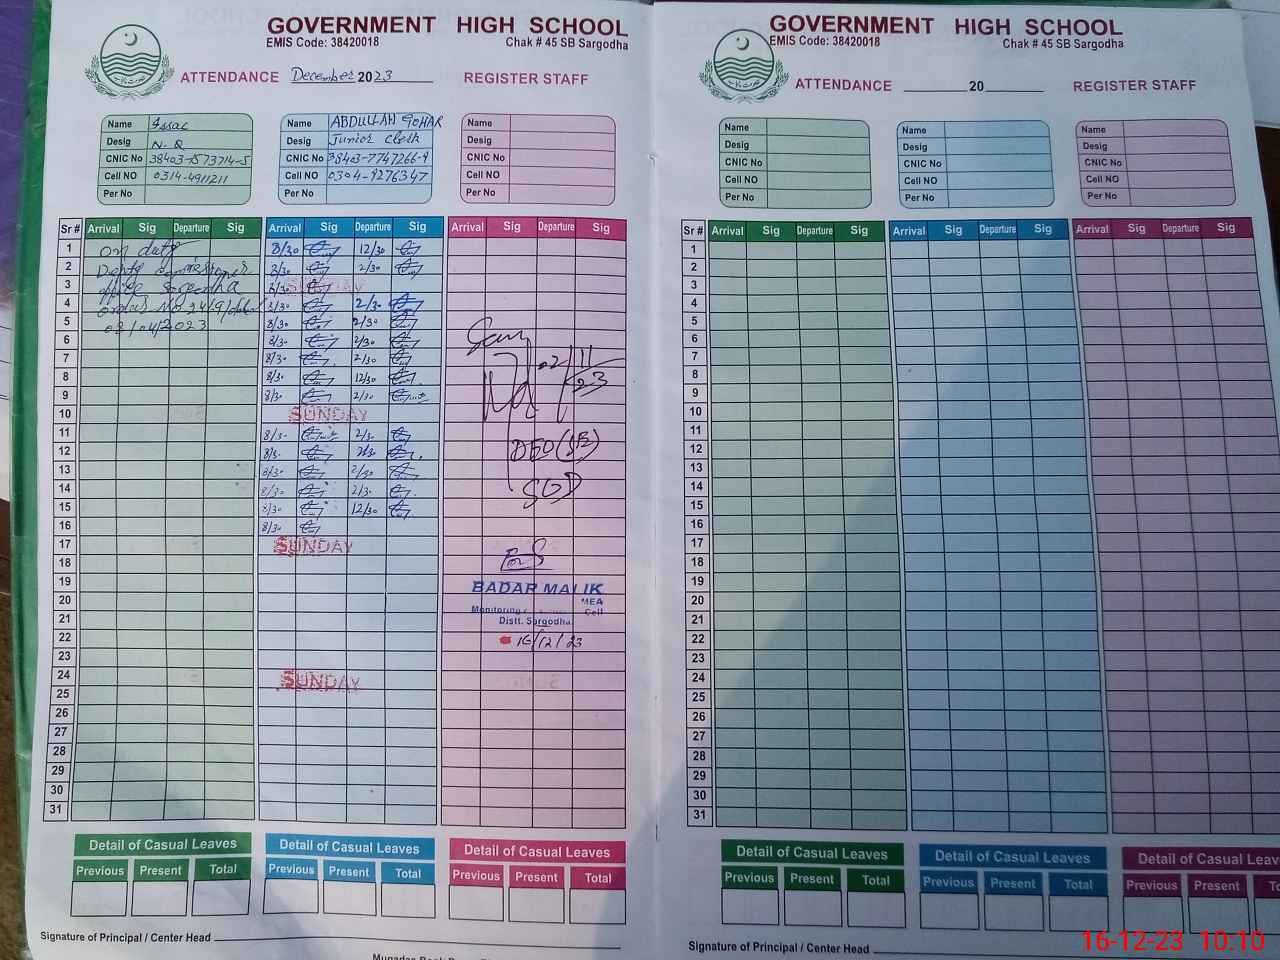 GOVERNMENT HIGH SCHOOL
EMIS Code: 38420018 Chak # 45 SB Sargodha
ATTENDANCE December 2023 REGISTER STAFF
Name Issac
Desig N.Q
CNIC No 38403-1573714-5
Cell NO 0314-4911211
Per No
Name ABDULLAH GOHAR
Desig Junior Clerk
CNIC No 38403-7747266-9
Cell NO 0304-9276347
Per No
Name
Desig
CNIC No
Cell NO
Per No
Sr # Arrival Sig Departure Sig Arrival Sig Departure Sig Arrival Sig Departure Sig
1 On duty 8/30 12/30
2 Depty Commissioner 8/30 2/30
3 office Sargodha 8/30 SUNDAY
4 order No 2419/ 8/30 2/30
5 02/04/2023 8/30 2/30
6 8/30 2/30
7 8/30 2/30
8 8/30 12/30
9 8/30 2/30
10 SUNDAY
11 8/30 2/30
12 8/30 2/30 DEO (SE)
13 8/30 2/30
14 8/30 2/30 SGD
15 8/30 12/30
16 8/30
17 SUNDAY
18
19 BADAR MALIK
20 MEA
21 Monitoring Cell
Distt. Sargodha
22 16/12/23
23
24 SUNDAY
25
26
27
28
29
30
31
Detail of Casual Leaves Detail of Casual Leaves Detail of Casual Leaves
Previous Present Total Previous Present Total Previous Present Total
Signature of Principal / Center Head
GOVERNMENT HIGH SCHOOL
EMIS Code: 38420018 Chak # 45 SB Sargodha
ATTENDANCE 20 REGISTER STAFF
Name
Desig
CNIC No
Cell NO
Per No
Name
Desig
CNIC No
Cell NO
Per No
Name
Desig
CNIC No
Cell NO
Per No
Sr # Arrival Sig Departure Sig Arrival Sig Departure Sig Arrival Sig Departure Sig
1
2
3
4
5
6
7
8
9
10
11
12
13
14
15
16
17
18
19
20
21
22
23
24
25
26
27
28
29
30
31
Detail of Casual Leaves Detail of Casual Leaves Detail of Casual Leaves
Previous Present Total Previous Present Total Previous Present
Signature of Principal / Center Head
16-12-23 10:10